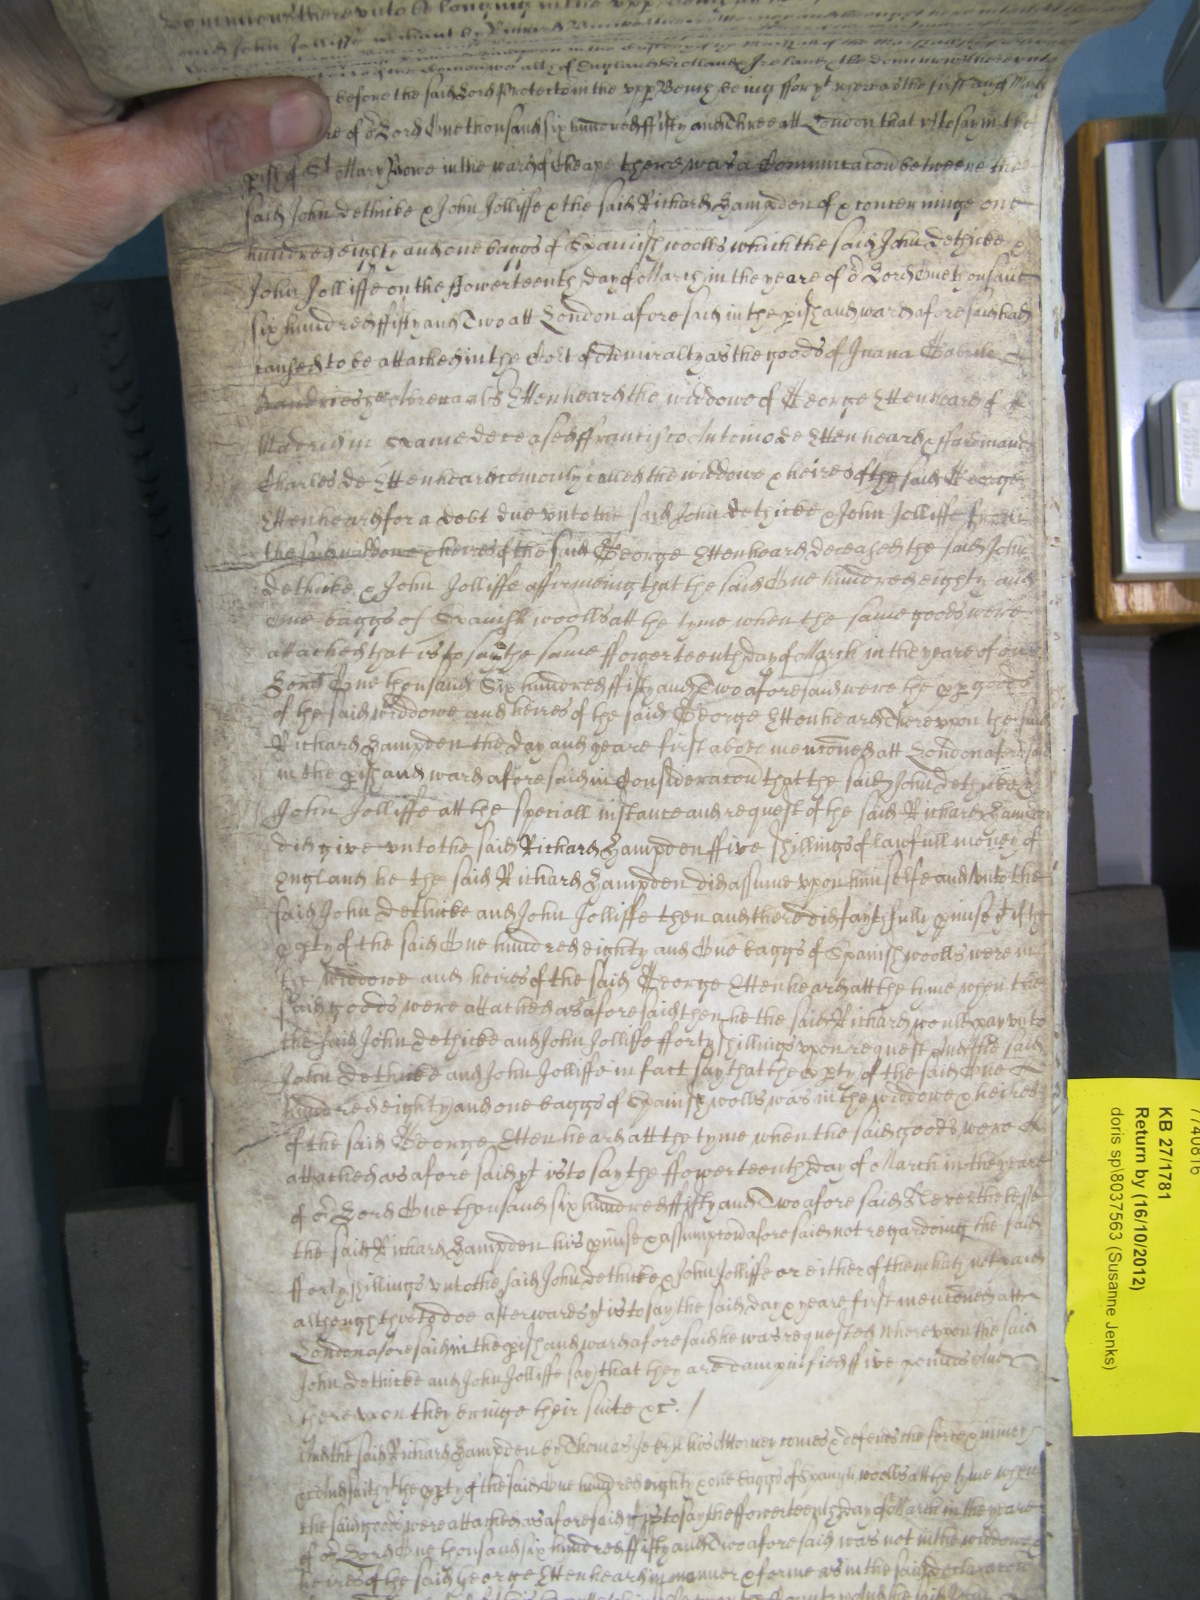 Dominions there unto belonging in the upp
said John Jolliffe
all of England Scotland & Ireland & the Dominions thereunto
before the said Lord Protector in the upp Bench
re of or Lord One thousand six hundred fifty and Three att London that is to say in the
pish of St Mary Bowe in the ward of Cheape there was a Communicacon betweene the
said John Dethicke & John Jolliffe & the said Richard Hampden of & concerninge one
hundred eighty and one baggs of Spanish woolls which the said John Dethicke &
John Jolliffe on the ffowerteenth day of March in the yeare of or Lord One thousand
six hundred fifty and Two att London aforesaid in the pish and ward aforesaid had
caused to be attached in the Cort of Admiralty as the goods of Juana
als Ettenheard the widdowe of George Ettenheard of
Madrid in Spaine deceased ffrancisco Antonio de Ettenheard & ffardinand
Charles de Ettenheard comonly called the widdowe & heires of the said George
Ettenheard for a debt due unto the said John Dethicke & John Jolliffe
the said widdowe & heires of the said George Ettenheard deceased the said John
Dethicke & John Jolliffe affirmeing that the said One hundred eighty and
one baggs of Spanish woolls att the tyme when the same goods were
attached that is to say the same ffowerteenth day of March in the yeare of our
Lord One thousand Six hundred fifty and Two aforesaid were the pp goods
of the said widdowe and heires of the said George Ettenheard Whereupon the said
Richard Hampden the day and yeare first above menconed att London aforesaid
in the pish and ward aforesaid in Consideracon that the said John Dethicke &
John Jolliffe att the speciall instance and request of the said Richard Hampden
did give unto the said Richard Hampden ffive shillings of lawfull money of
England he the said Richard Hampden did assume upon himselfe and unto the
said John Dethicke and John Jolliffe then and there did faythfully pmise if the
ppty of the said One hundred eighty and One baggs of Spanish woolls were in
the widdowe and heires of the said George Ettenheard att the tyme when the
said goods were attached as aforesaid then he the said Richard would pay unto
the said John Dethicke and John Jolliffe fforty shillings upon request And the said
John Dethicke and John Jolliffe in fact say that the ppty of the said One
hundred eighty and one baggs of Spanish wolls was in the widdowe & heires
of the said George Ettenheard att the tyme when the said goods were
attached as aforesaid yt is to say the ffowerteenth day of March in the yeare
of or Lord One thousand six hundred fifty and Two aforesaid Neverthelesse
the said Richard Hampden his pmise & assumpcon aforesaid not regardeing the said
fforty shillings unto the said John Dethicke & John Jolliffe or either of them hath not paid
although this to doe afterwards yt is to say the said day & yeare first menconed att
London aforesaid in the pish and ward aforesaid he was requested Whereupon the said
John Dethicke and John Jolliffe say that they are dampnified ffive pounds And
thereupon they bringe their suite &c. /
And the said Richard Hampden by Thomas his Attorney comes & defends the force & iniury
and saith yt the ppty of the said One hundred eighty & one baggs of Spanish woolls att the tyme when
the said goods were attached as aforesaid yt is to say the ffowerteenth day of March in the yeare
of or Lord One thousand six hundred fifty and Two aforesaid was not in the widdowe &
heires of the said George Ettenheard in manner & forme as in the said declaracon
7740816
KB 27/1781
Return by (16/10/2012)
doris sp\8037563 (Susanne Jenks)